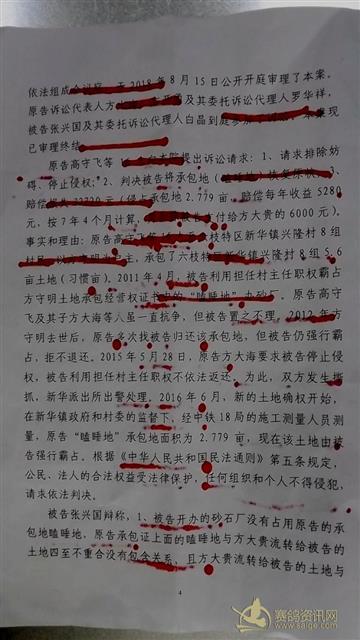 依法组成 于2018年8月15日公开开庭审理了本案。
原告诉讼代表人方 及其委托诉讼代理人罗华祥，
被告张兴国及其委托诉讼代理人白晶到庭参加 现
已审理终结
原告高守飞等 提出诉讼请求：1、请求排除妨
碍、停止侵权；2、判决被告将承包地（瞌睡地）恢复
赔偿 2.779亩，赔偿每年收益5280
元，按7年4个月计算， 付给方大贵的6000元）。
事实和理由：原告高守飞等 六枝特区新华镇兴隆村8组
村民， 主，承包了六枝特区新华镇兴隆村8组5.6
亩土地（习惯亩）。2011年4月，被告利用担任村主任职权霸占
方守明土地承包经营权证书中的“瞌睡地”办砂厂。原告高守
飞及其子方大海等八星一直抗争，但被告置之不理，2012年方
守明去世后，原告多次找被告归还该承包地，但被告仍强行霸
占，拒不退还。2015年5月28日，原告方大海要求被告停止侵
权，被告利用担任村主任职权不依法返还。为此，双方发生撕
抓，新华派出所出警处理。2016年6月，新的土地确权开始，
在新华镇政府和村委的监督下，经中铁18局的施工测量人员测
量，原告“瞌睡地”承包地面积为2.779亩，现在该土地由被
告强行霸占。根据《中华人民共和国民法通则》第五条规定，
公民、法人的合法权益受法律保护，任何组织和个人不得侵犯，
请求依法判决。
被告张兴国辩称，1、被告开办的砂石厂没有占用原告的承
包地瞌睡地，原告承包证上面的瞌睡地与方大贵流转给被告的
土地四至不重合没有包含关系，且方大贵流转给被告的土地与
4
赛鸽资讯网
www.saige.com